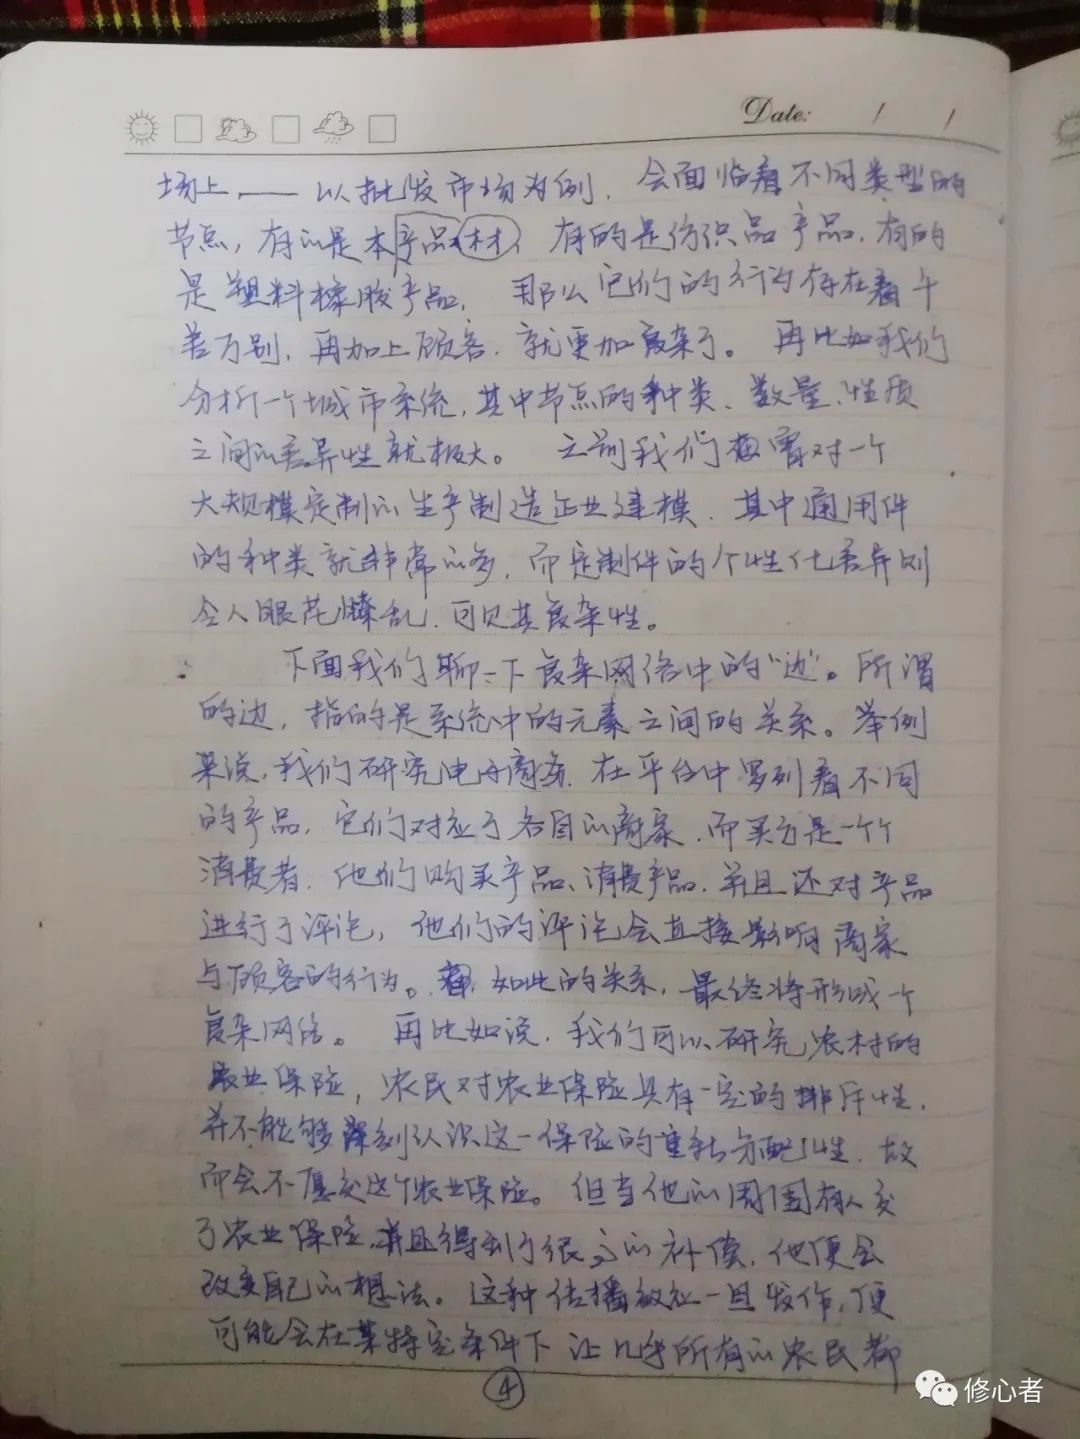 Date: / /
场上——以批发市场为例，会面临着不同类型的
节点，有的是木材产品，有的是纺织品产品，有的
是塑料橡胶产品，那么它们的行为存在着千
差万别，再加上顾客，就更加复杂了。再比如我们
分析一个城市系统，其中节点的种类、数量、性质
之间的差异性就极大。之前我们曾对一个
大规模定制的生产制造企业建模，其中通用件
的种类就非常的多，而定制件的个性化差异则
令人眼花缭乱，可见其复杂性。
下面我们聊一下复杂网络中的“边”。所谓
的边，指的是系统中的元素之间的关系。举例
来说，我们研究电子商务，在平台中罗列着不同
的产品，它们对应于各自的商家，而买方是一个个
消费者，他们购买产品、消费产品，并且还对产品
进行了评论，他们的评论会直接影响商家
与顾客的行为。如此的关系，最终将形成一个
复杂网络。再比如说，我们可以研究农村的
农业保险，农民对农业保险具有一定的排斥性，
并不能够深刻认识这一保险的重新分配性，故
而会不愿交这个农业保险。但当他的周围有人交
了农业保险，并且得到了很高的补偿，他便会
改变自己的想法。这种传播效应一旦发作，便
可能会在某特定条件下让几乎所有的农民都
④
修心者